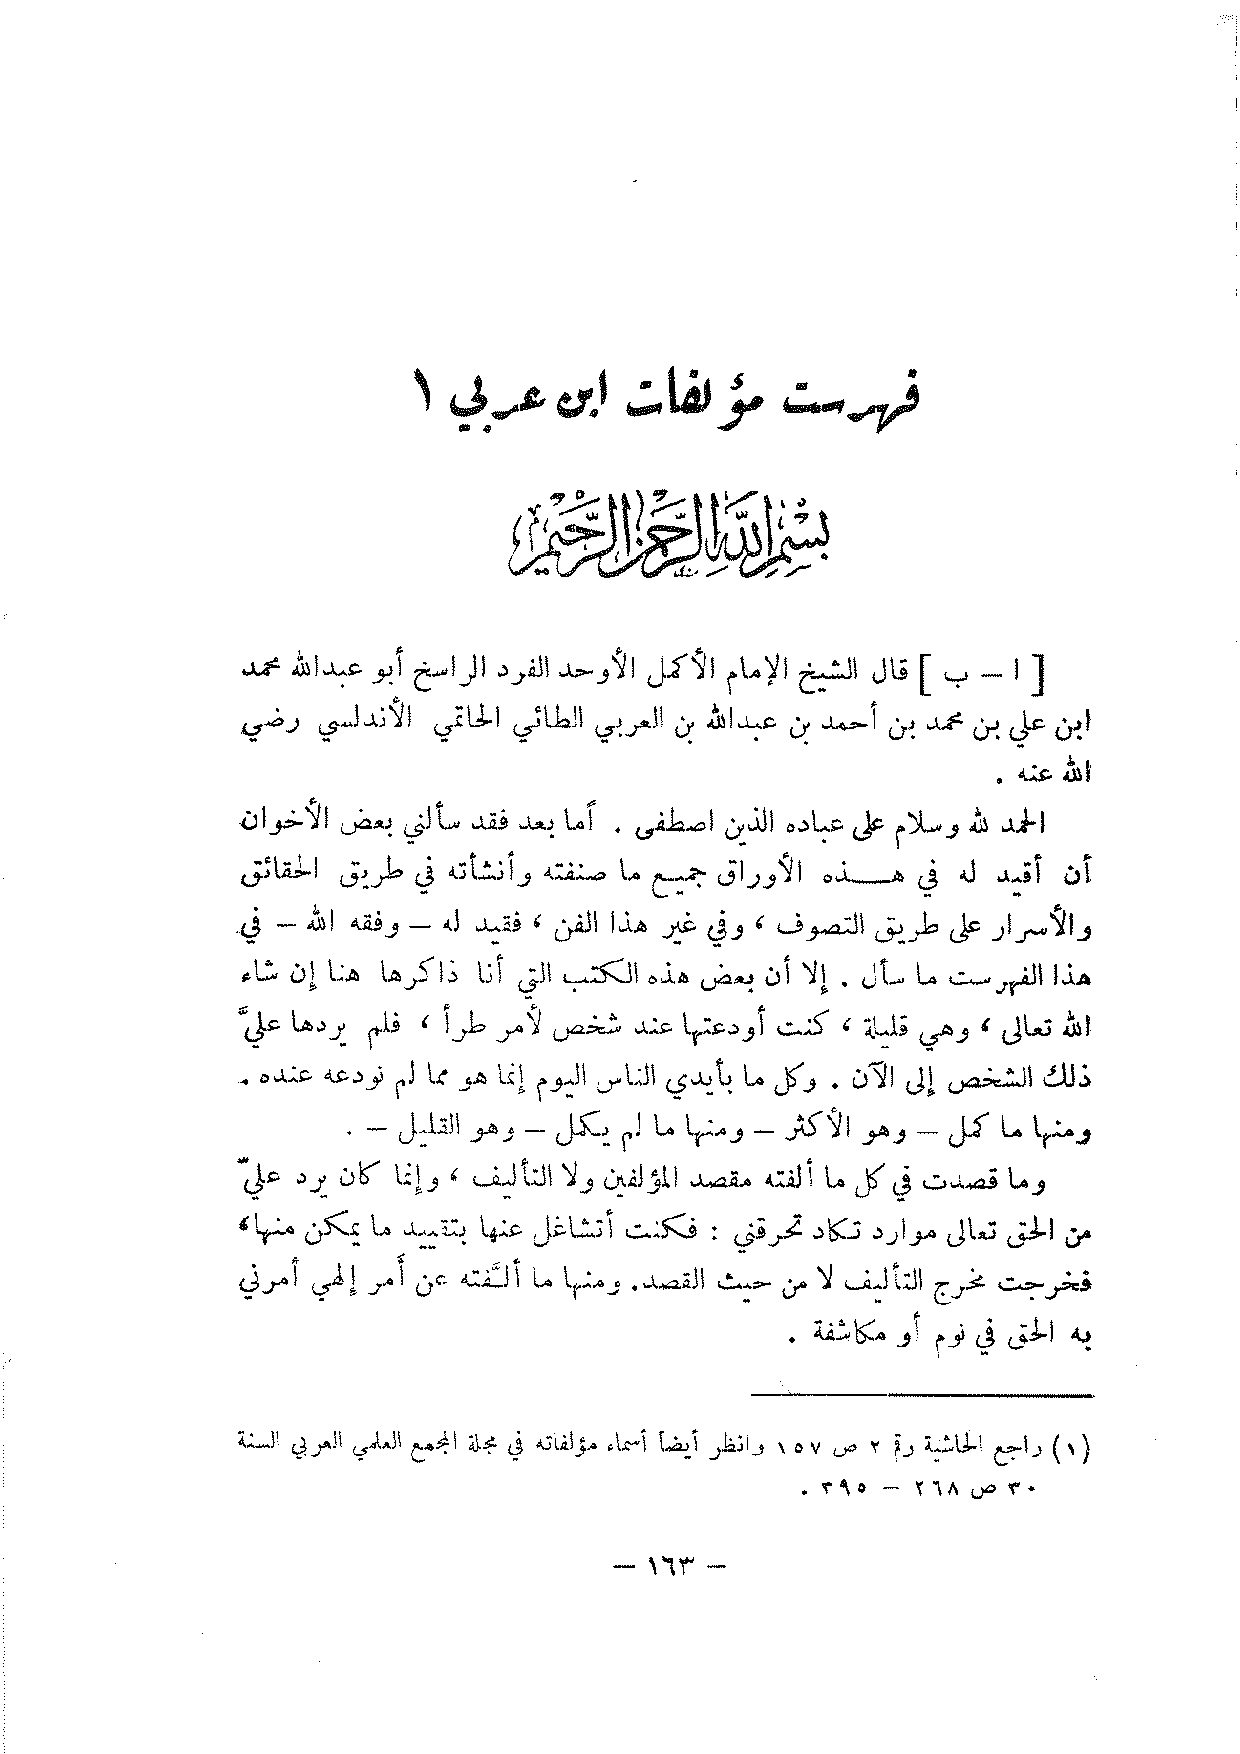 فهرست مؤلفات ابن عربي ١
بِسْمِ اللَّهِ الرَّحْمٰنِ الرَّحِيمِ
[ ا – ب ] قال الشيخ الإمام الأكمل الأوحد الفرد الراسخ أبو عبدالله محمد
ابن علي بن محمد بن أحمد بن عبدالله بن العربي الطائي الحاتمي الأندلسي رضي
الله عنه .
الحمد لله وسلام على عباده الذين اصطفى . أما بعد فقد سألني بعض الأخوان
أن أقيد له في هـذه الأوراق جميع ما صنفته وأنشأته في طريق الحقائق
والأسرار على طريق التصوف ، وفي غير هذا الفن ، فقيد له – وفقه الله – في
هذا الفهرست ما سأل . إلا أن بعض هذه الكتب التي أنا ذاكرها هنا إن شاء
الله تعالى ، وهي قليلة ، كنت أودعتها عند شخص لأمر طرأ ، فلم يردها عليّ
ذلك الشخص إلى الآن . وكل ما بأيدي الناس اليوم إنما هو مما لم نودعه عنده .
ومنها ما كمل – وهو الأكثر – ومنها ما لم يكمل – وهو القليل – .
وما قصدت في كل ما ألفته مقصد المؤلفين ولا التأليف ، وإنما كان يرد عليّ
من الحق تعالى موارد تكاد تحرقني : فكنت أتشاغل عنها بتقييد ما يمكن منها،
فخرجت مخرج التأليف لا من حيث القصد. ومنها ما ألَّفته عن أمر إلهي أمرني
به الحق في نوم أو مكاشفة .
(١) راجع الحاشية رقم ٢ ص ١٥٧ وانظر أيضاً أسماء مؤلفاته في مجلة المجمع العلمي العربي السنة
٣٠ ص ٢٦٨ – ٣٩٥ .
– ١٦٣ –